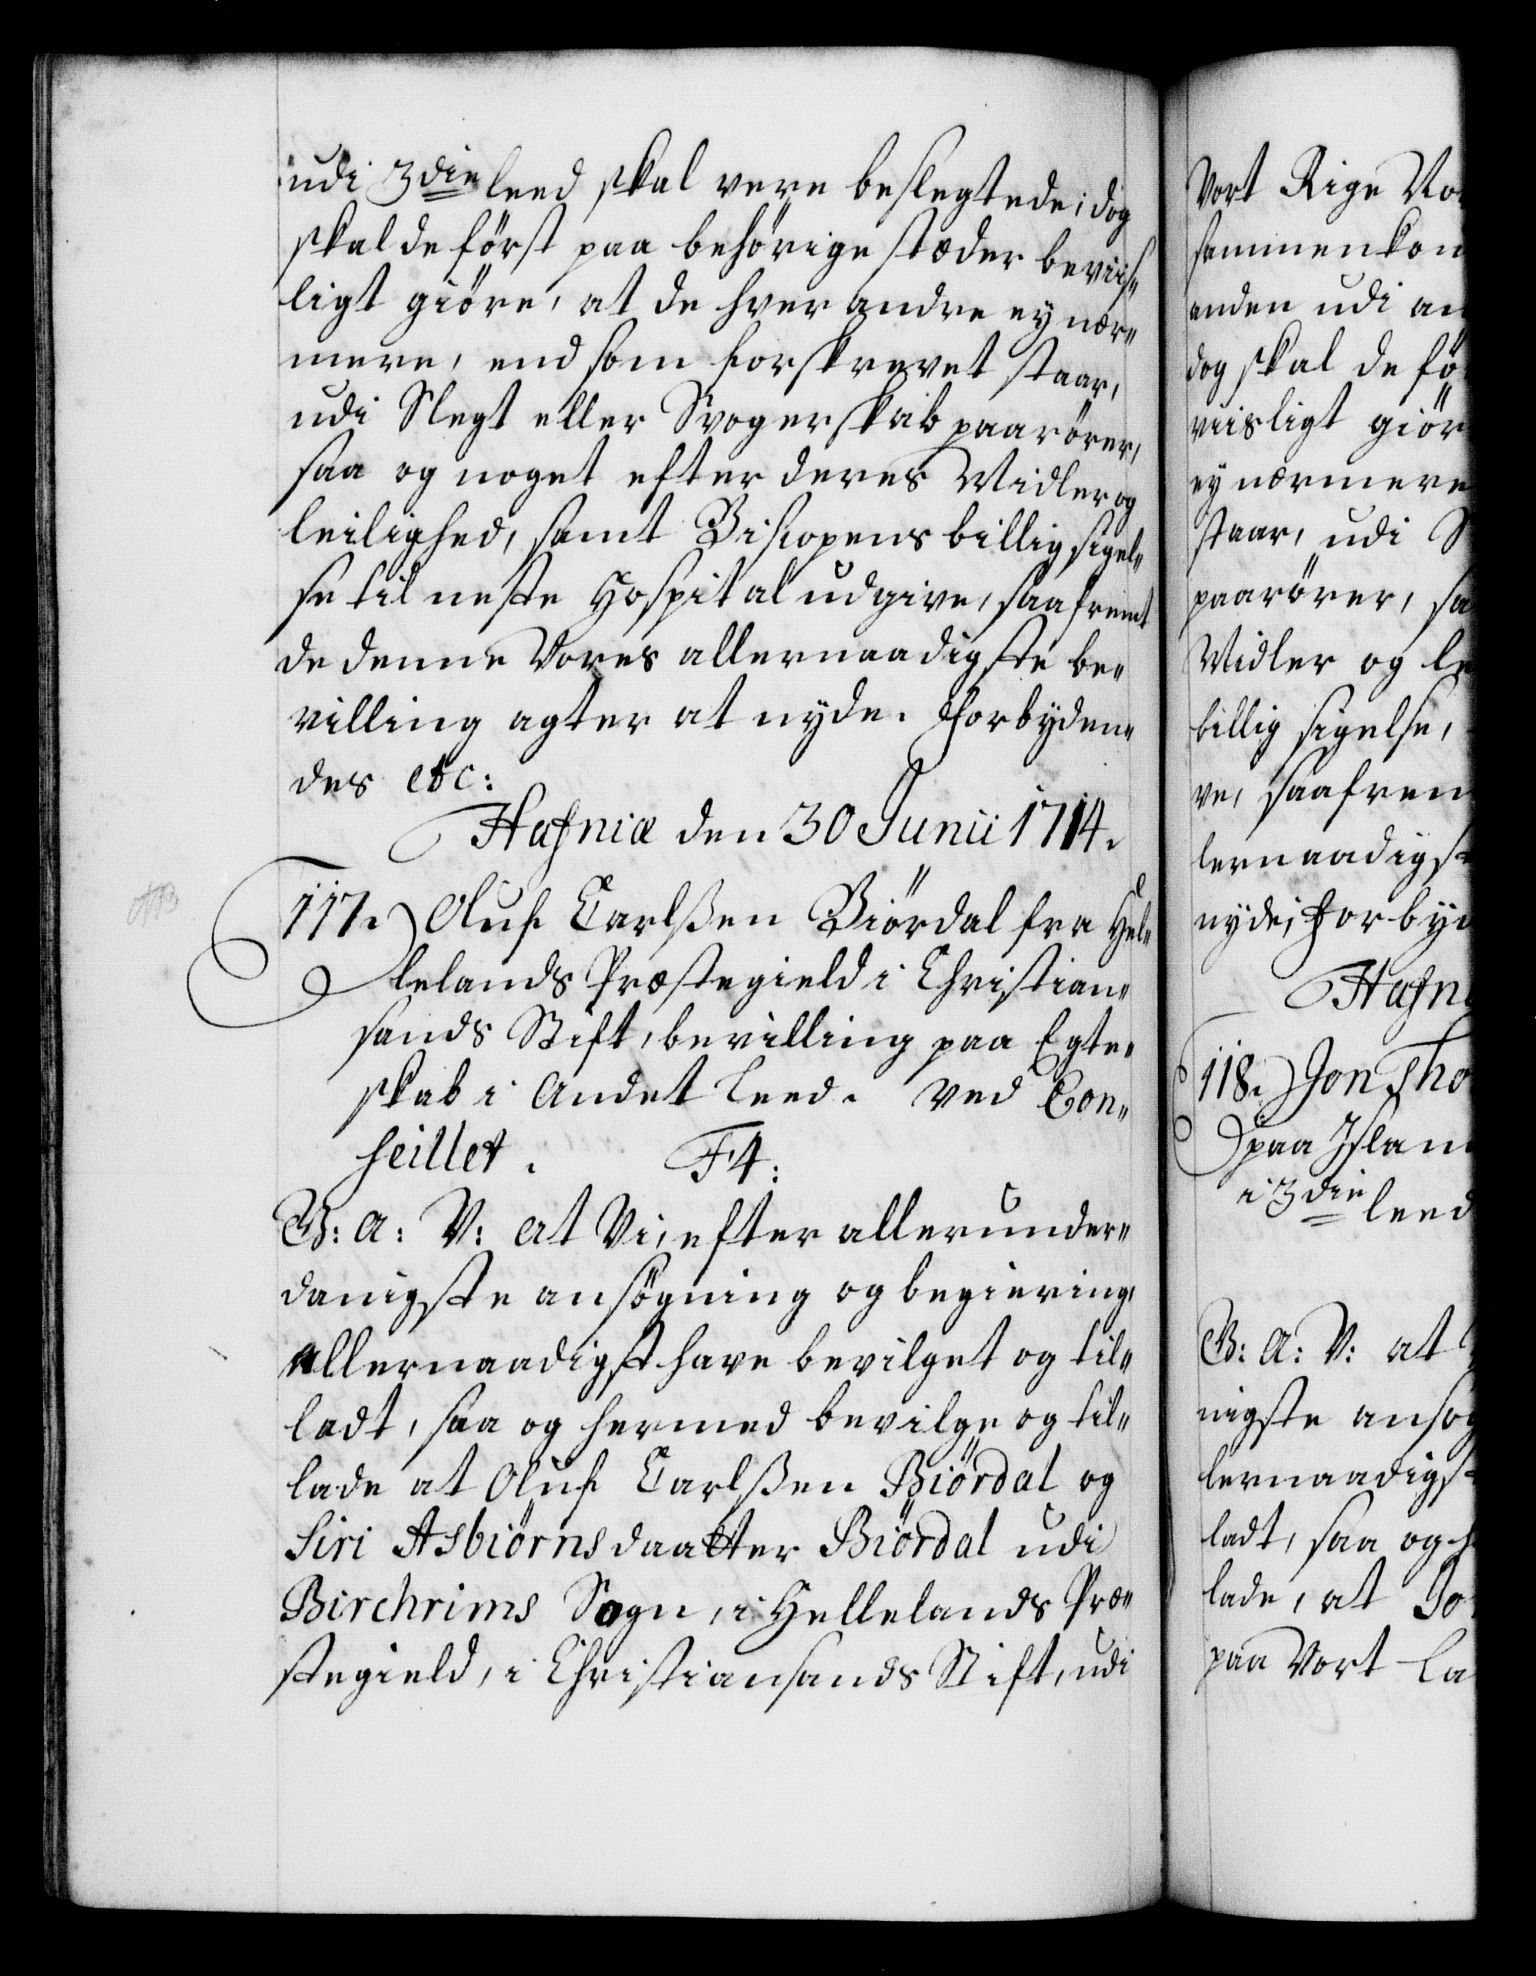 udi 3die leed skal vere beslegtede; dog
skal de först paa behörige stæder beviis„
ligt giöre, at de hver andre ey nær„
mere, end som forskrevet staar,
udi Slegt eller Svogerskab paarörer,
saa og noget efter deres Midler og
leilighed, samt Biscopens billig sigel„
se til neste Hospital udgive, saafremt
de denne Vores allernaadigste be„
villing agter at nyde. Forbyden„
des etc:
Hafniæ den 30 Junii 1714.
117.) Oluf Carlßen Biördal fra Hel„
lelands Præstegield i Christian„
sands Stift, bevilling paa Egte„
skab i Andet Leed. Ved Con„
seillet. F4:
G: A: V: At Vi, efter allerunder„
danigste ansögning og begiering,
allernaadigst have bevilget og til„
ladt, saa og hermed bevilge og til„
lade at Oluf Carlßen Biördal og
Siri Asbiörns daatter Biördal udi
Birchrims Sogn, i Hellelands Præ„
stegield, i Christiansands Stift, udi
Vort Rige No
sammenkom
anden udi an
dog skal de fö
viisligt giör
ey nærmere
staar, udi S
paarörer, sa
Midler og le
billig sigelse,
ve, saafrem
lernaadigst
nyde, Forbyd
Hafni
118.) Jon Tho
paa Islan
i 3die leed
G: A: V: at
nigste ansög
lernaadigst
ladt, saa og h
lade, at Jo
paa Vort La